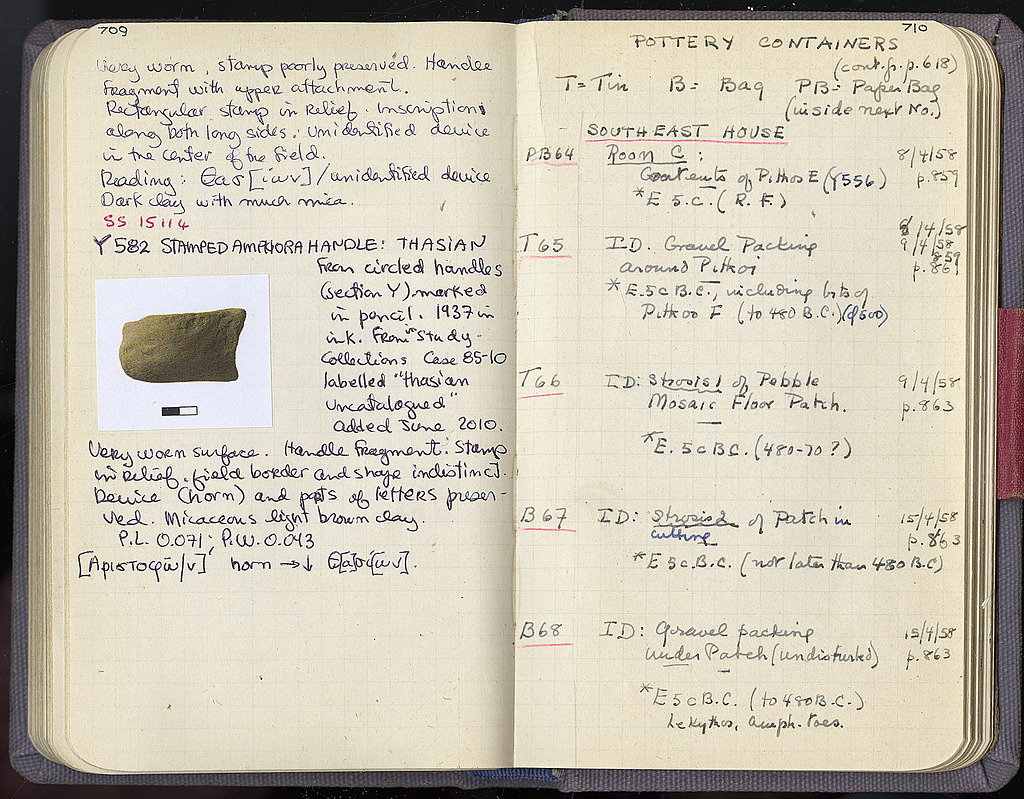 709
Very worm, stamp poorly preserved. Handle
fragment with upper attachment.
Rectangular stamp in relief. Inscriptions
along both long sides. Unidentified device
in the center of the field.
Reading: Θασ[ίων]/unidentified device
Dark clay with much mica.
SS 15114
Y 582 STAMPED AMPHORA HANDLE: THASIAN
From circled handles
(section Y) marked
in pencil. 1937 in
ink. From "Study-
Collections Case 85-10
labelled "Thasian
uncatalogued"
Added June 2010.
Very worn surface. Handle fragment. Stamp
in relief, field border and shape indistinct.
Device (horn) and parts of letters preser-
ved. Micaceous light brown clay.
P.L. 0.071; P.W. 0.043
[Αριστοφῶ/ν] horn →↓ Θ[α]σί[ων].
710
POTTERY CONTAINERS
(cont. fr. p. 618)
T = Tin B = Bag PB = Paper Bag
(inside next No.)
SOUTHEAST HOUSE
PB64 Room C: 8/4/58
Contents of Pithos E (Y556) p.859
*E 5.C. (R.F.)
8/4/58
T65 ID. Gravel Packing 9/4/58
859
around Pithoi p.861
*E. 5c B.C., including bits of
Pithos F (to 480 B.C.)
T66 ID: Strosis 1 of Pebble 9/4/58
Mosaic Floor Patch. p.863
*E. 5c BC. (480-70?)
B67 ID: Strosis 2 of Patch in 15/4/58
cutting p.863
*E 5c.B.C. (not later than 480 B.C)
B68 ID: Gravel packing 15/4/58
under Patch (undisturbed) p.863
*E 5c B.C. (to 480 B.C.)
Lekythos, amph. toes.